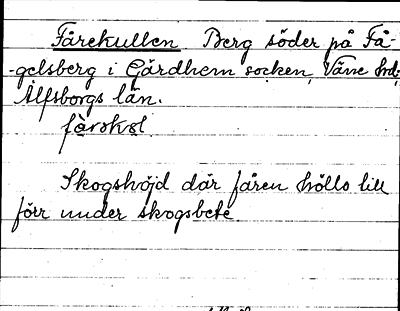 Fårekullen Berg söder på Få-
-gelsberg i Gärdhem socken, Väne hd.
Älfsborgs län.
Skogshöjd där fåren höllo till
förr under skogsbete.